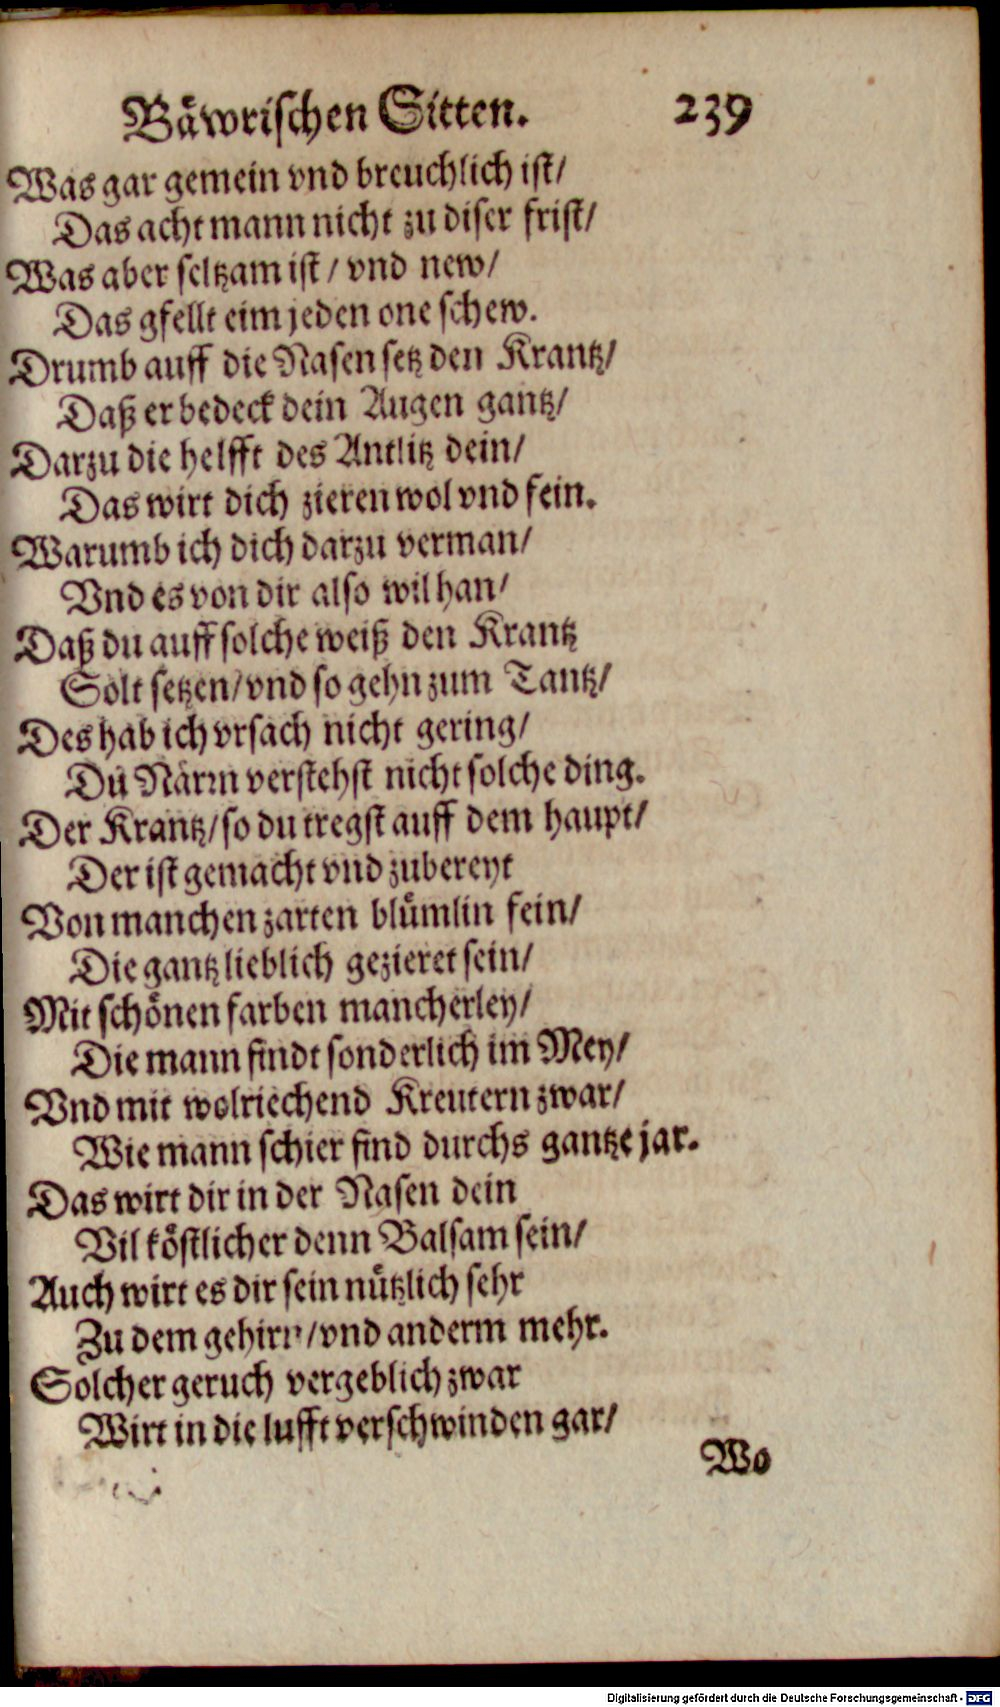 Bäwrischen Sitten. 239
Was gar gemein vnd breuchlich ist/
Das acht mann nicht zu diser frist/
Was aber seltzam ist / vnd new/
Das gfellt eim jeden one schew.
Drumb auff die Nasen setz den Krantz/
Daß er bedeck dein Augen gantz/
Darzu die helfft des Antlitz dein/
Das wirt dich zieren wol vnd fein.
Warumb ich dich darzu verman/
Vnd es von dir also wil han/
Daß du auff solche weiß den Krantz
Solt setzen/ vnd so gehn zum Tantz/
Des hab ich vrsach nicht gering/
Du Närrin verstehst nicht solche ding.
Der Krantz/ so du tregst auff dem haupt/
Der ist gemacht vnd zubereyt
Von manchen zarten blümlin fein/
Die gantz lieblich gezieret sein/
Mit schönen farben mancherley/
Die mann findt sonderlich im Mey/
Vnd mit wolriechend Kreutern zwar/
Wie mann schier find durchs gantze jar.
Das wirt dir in der Nasen dein
Vil köstlicher denn Balsam sein/
Auch wirt es dir sein nützlich sehr
Zu dem gehirn/ vnd anderm mehr.
Solcher geruch vergeblich zwar
Wirt in die lufft verschwinden gar/
Wo
Digitalisierung gefördert durch die Deutsche Forschungsgemeinschaft - DFG